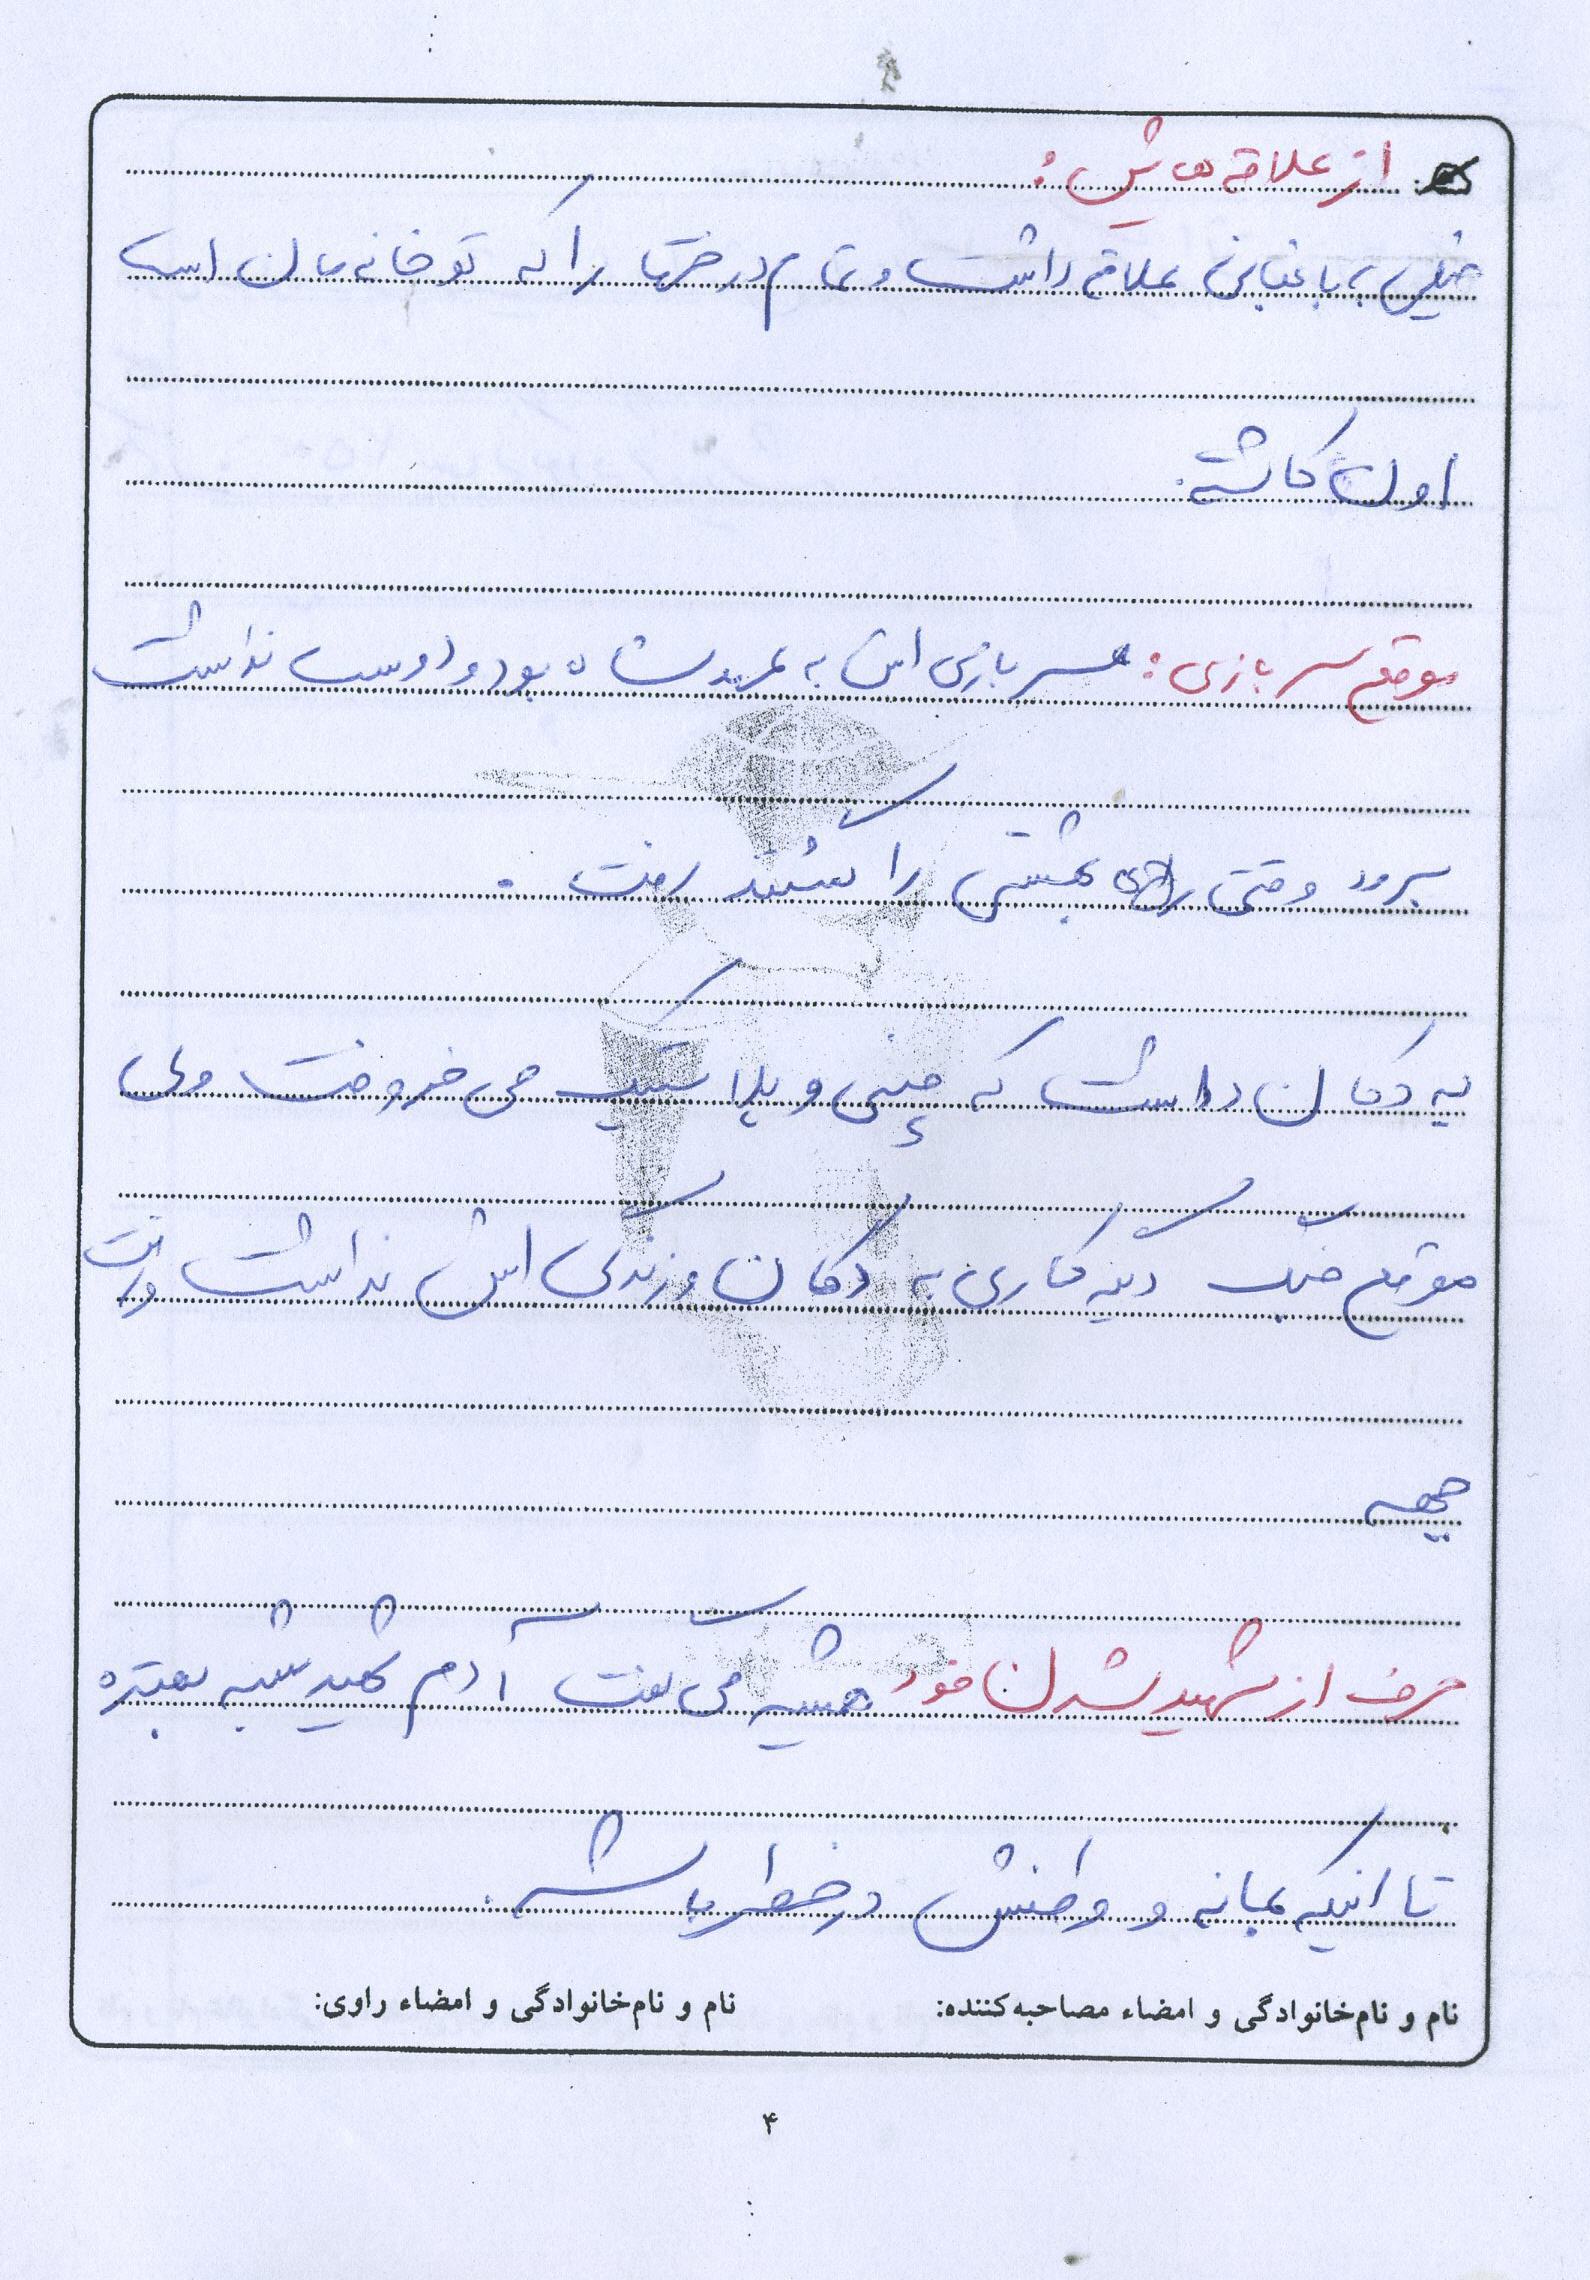 از علاقه هایش:
خیلی به باغبانی علاقه داشت و تمام درختها را که تو خانه مان است
اون کاشته.
موقع سربازی: سربازی اش به عهد شاه بود و دوست نداشت
برود وقتی بهشتی را کشتند رفت.
یه دکان داشت که چینی و پلاستیک می فروخت ولی
موقع جنگ دیگه کاری به دکان و زندگی اش نداشت و رفت
جبهه
حرف از شهید شدن خود همیشه می گفت آدم شهید بشه بهتره
تا اینکه بمانه و وطنش در خطر باشه.
نام و نام‌خانوادگی و امضاء مصاحبه‌کننده: نام و نام‌خانوادگی و امضاء راوی:
۴